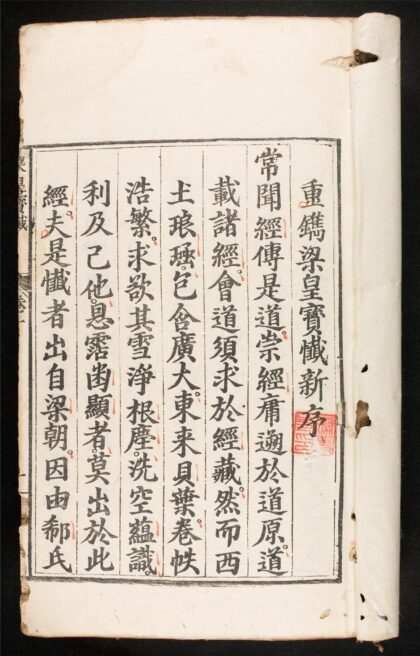 重鐫梁皇寶懺新序
常聞經傳是道崇經庸遡於道原道
載諸經會道須求於經藏然而西
土琅函包含廣大東来貝葉卷帙
浩繁求欲其雪淨根塵洗空蘊識
利及己他恩霑幽顯者莫出於此
經夫是懺者出自梁朝因由郗氏
梁皇寶懺
卷一